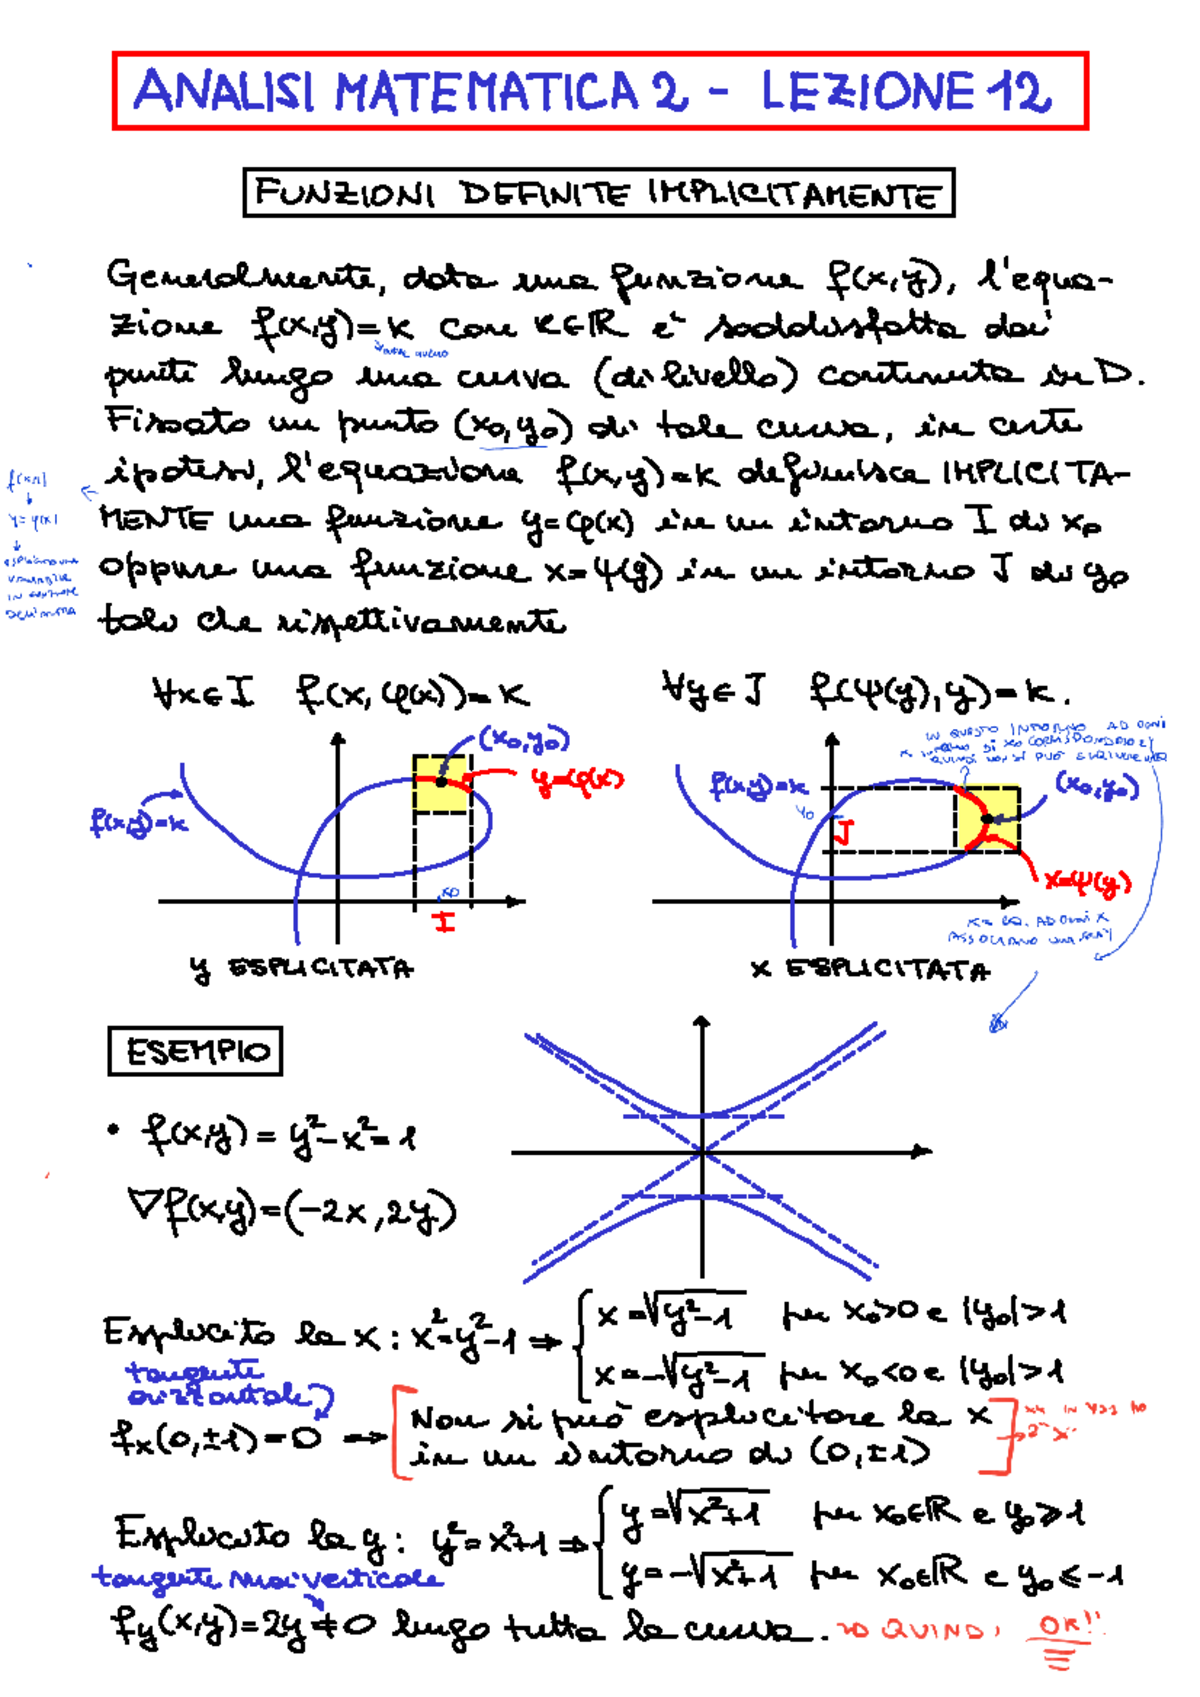 ANALISI MATEMATICA 2 - LEZIONE 12
FUNZIONI DEFINITE IMPLICITAMENTE
Generalmente, data una funzione f(x,y), l'equa-
zione f(x,y)=k con k∈ℝ è soddisfatta dai
punti lungo una curva (di livello) contenuta in D.
Fissato un punto (x₀,y₀) di tale curva, in certe
ipotesi, l'equazione f(x,y)=k definisce IMPLICITA-
MENTE una funzione y=φ(x) in un intorno I di x₀
oppure una funzione x=ψ(y) in un intorno J di y₀
tali che rispettivamente
y=φ(x)
∀x∈I f(x,φ(x))=k
∀y∈J f(ψ(y),y)=k.
(x₀,y₀)
y=φ(x)
f(x,y)=k
x₀
I
y ESPLICITATA
IN QUESTO INTORNO AD OGNI
f(x,y)=k
(x₀,y₀)
y₀
J
x=ψ(y)
x ESPLICITATA
ESEMPIO
• f(x,y)=y²-x²=1
∇f(x,y)=(-2x,2y)
Esplicito la x: x²=y²-1 ⇒ { x=√(y²-1) per x₀>0 e |y₀|>1
x=-√(y²-1) per x₀<0 e |y₀|>1
tangente
orizzontale
fx(0,±1)=0 → [Non si può esplicitare la x
in un intorno di (0,±1)]
Esplicito la y: y²=x²+1 ⇒ { y=√(x²+1) per x₀∈ℝ e y₀≥1
y=-√(x²+1) per x₀∈ℝ e y₀≤-1
tangente mai verticale
fy(x,y)=2y≠0 lungo tutta la curva. → QUINDI OK!!